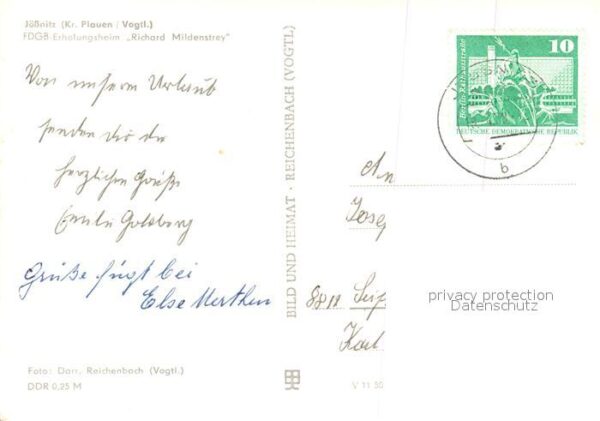 Jößnitz (Kr. Plauen / Vogtl.)
FDGB-Erholungsheim „Richard Mildenstrey"
Von unserem Urlaub
senden dir die
herzlichen Grüße
Familie Goldberg
Grüße fügt bei
Else Merthen
Foto: Darr, Reichenbach (Vogtl.)
DDR 0,25 M
BILD UND HEIMAT · REICHENBACH (VOGTL)
V 11 50
10
Berlin, Rathausstraße
DEUTSCHE DEMOKRATISCHE REPUBLIK
b
An
Josep
Seif
Karl
privacy protection
Datenschutz